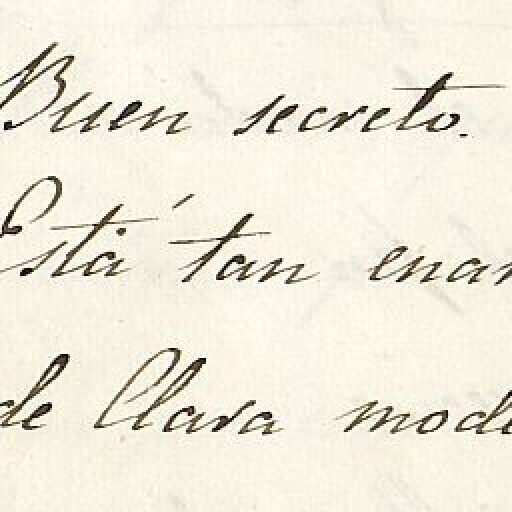 Buen secreto.
Está tan enam
de Clara mod